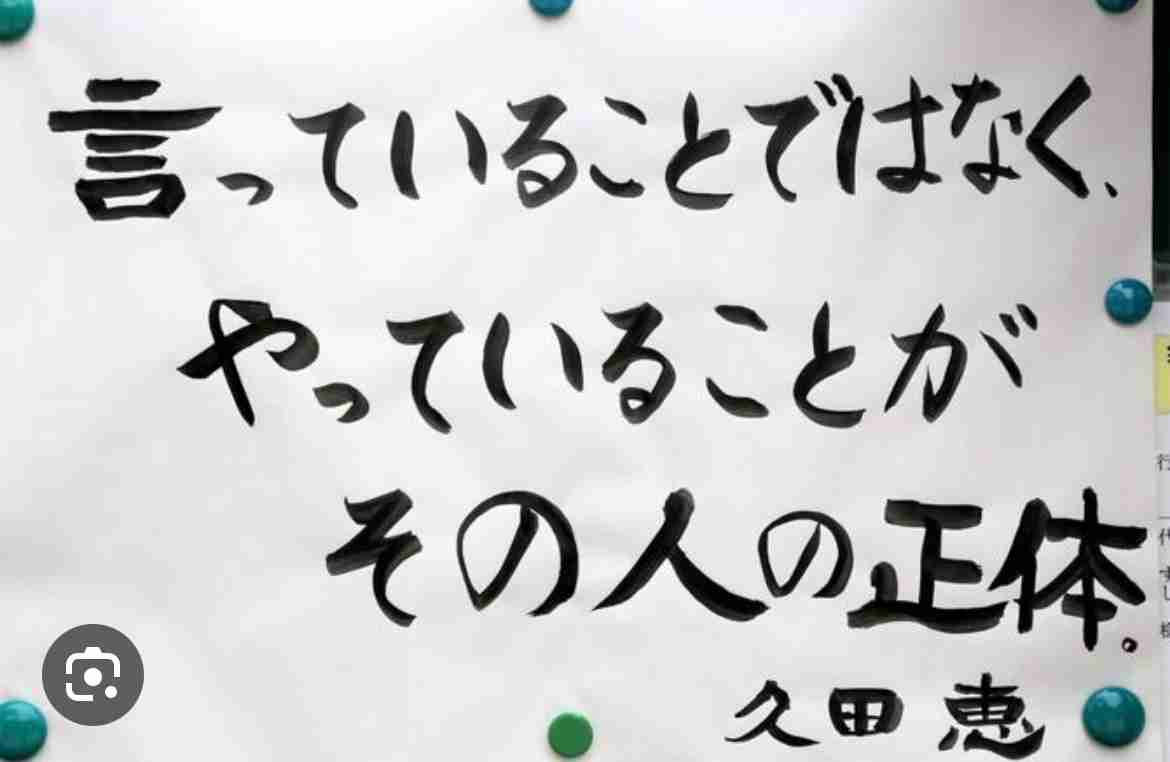 言っていることではなく、
やっていることが
その人の正体。
久田 恵